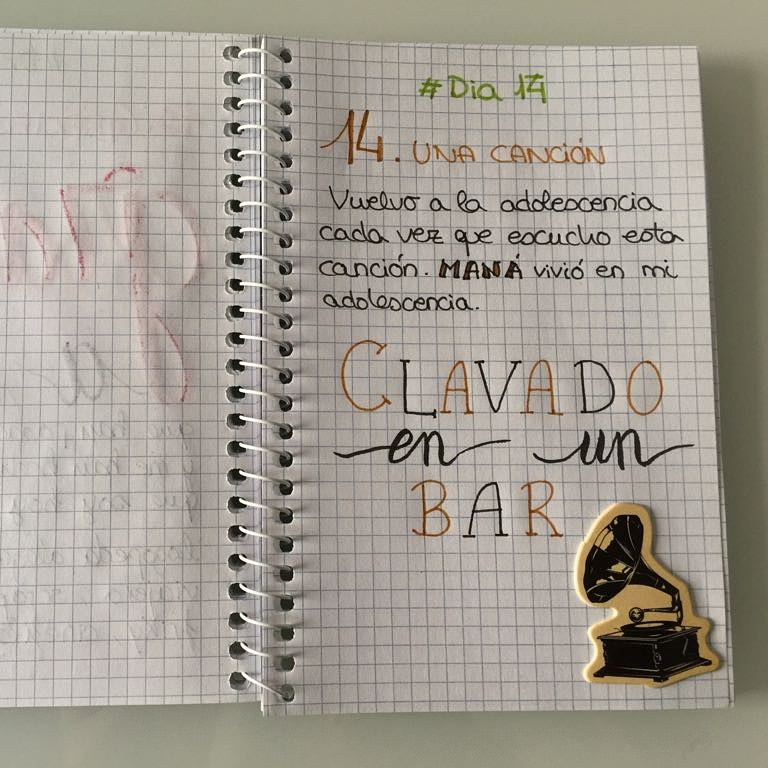 #Dia 14
14. UNA CANCIÓN
Vuelvo a la adolescencia
cada vez que escucho esta
canción. MANÁ vivió en mi
adolescencia.
CLAVADO
en un
BAR